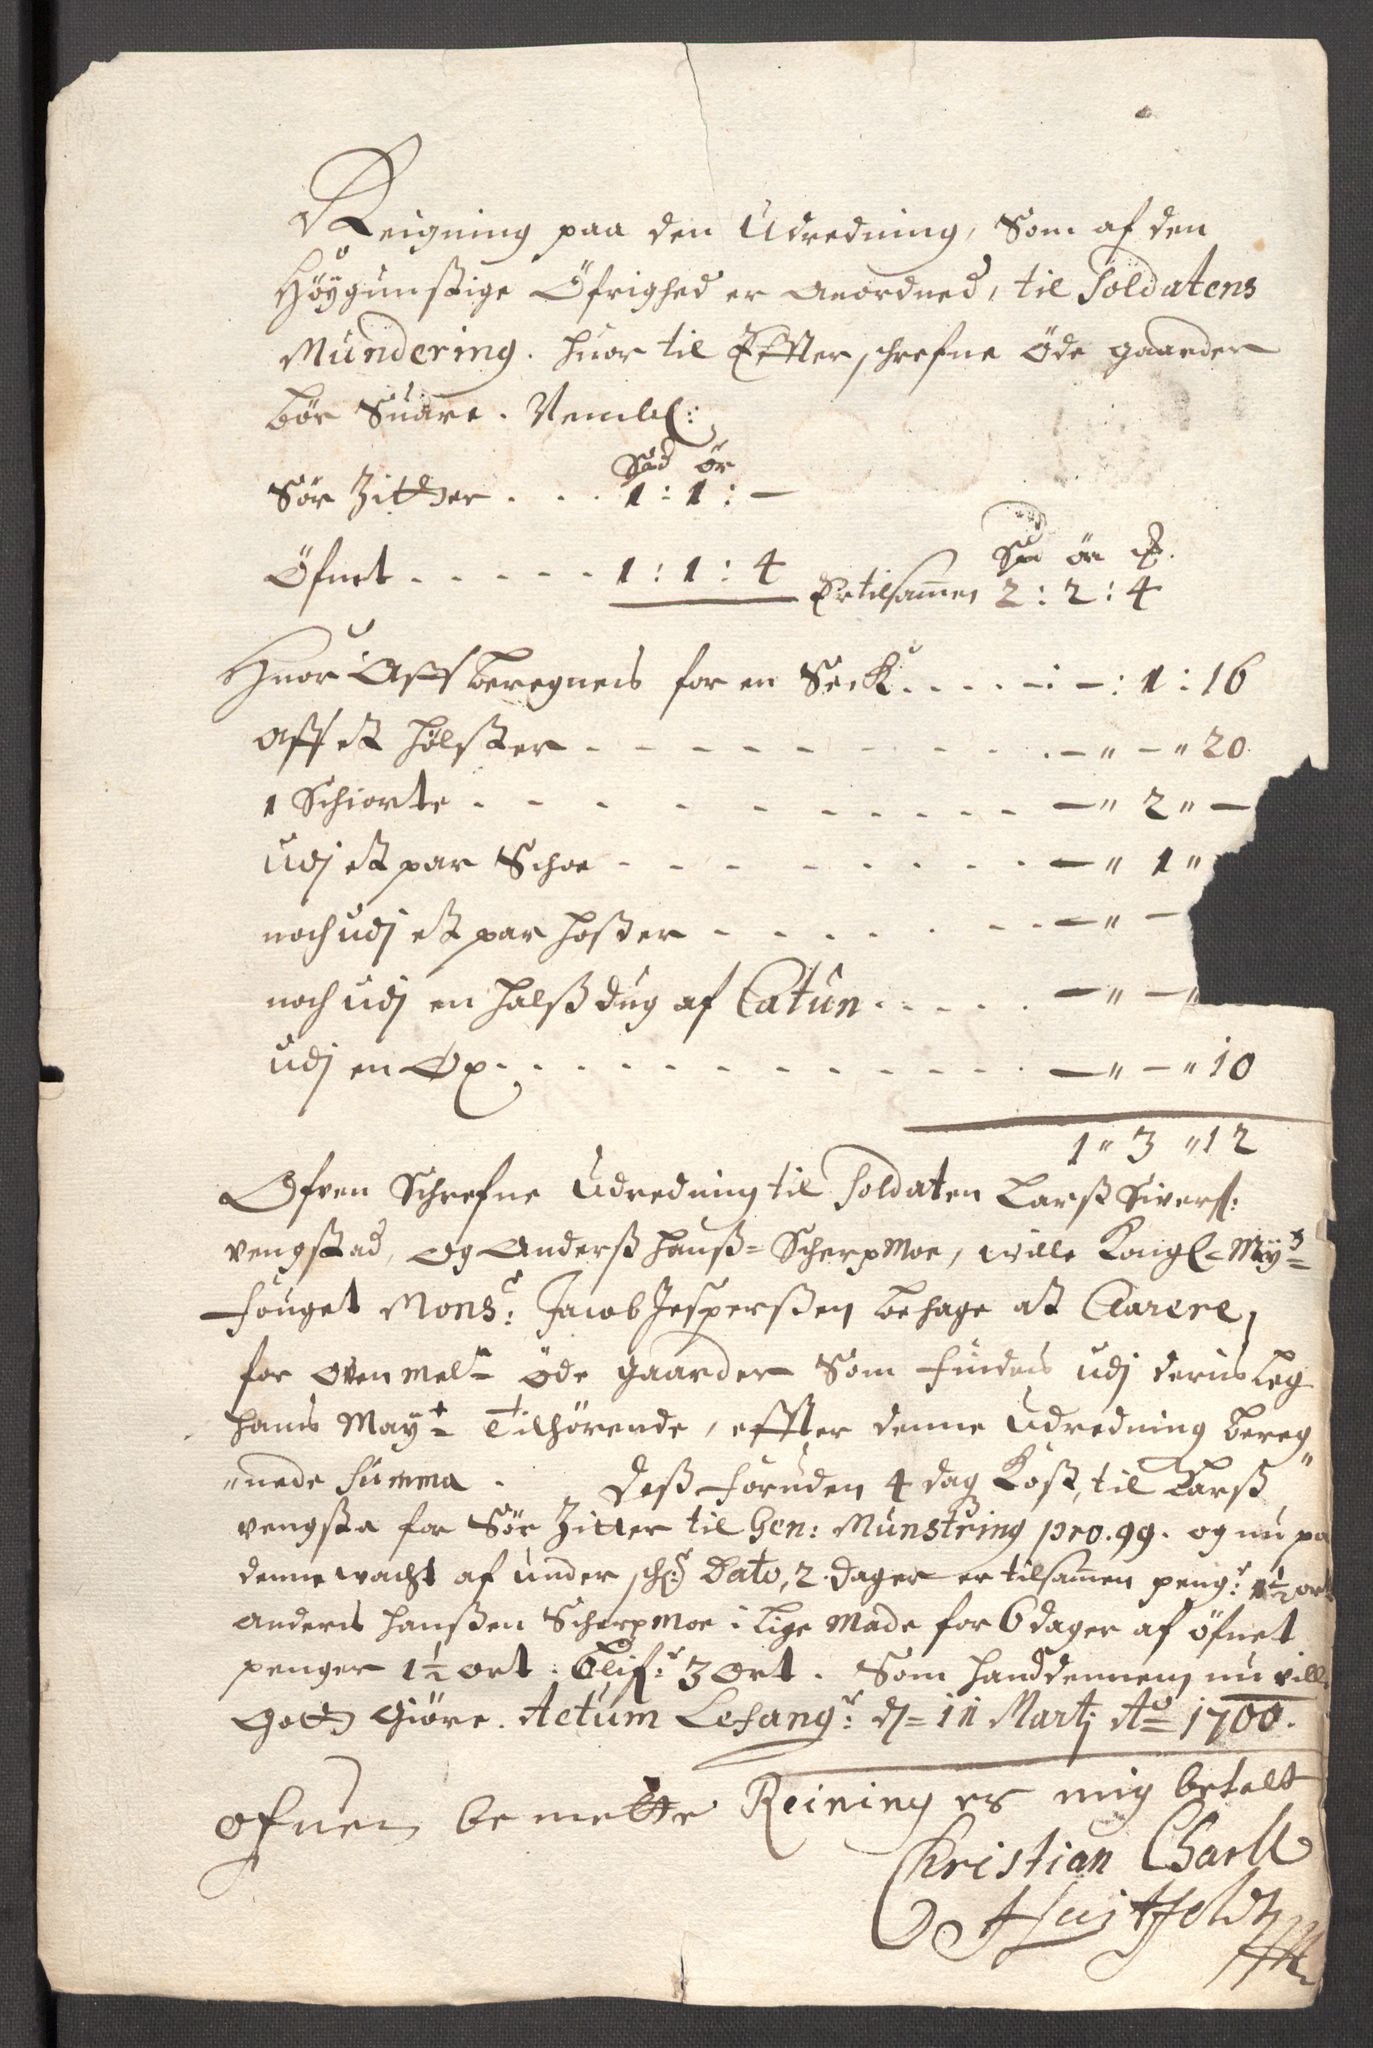 Reigning paa den Udredning, Som af den
Höygunstige Öfrighed er Anordned, til Soldatens
Mundering. huor til Effterschrefne öde gaarder
bör Suare. Nemlig:
Spd ör
Sör Zitter . . . 1 : 1 : —
Spd ör
Öfnet . . . . . 1 : 1 : 4 Er tilsamen 2 : 2 : 4
Huor Aff beregneis for en Seck . . . . – : – : 1 : 16
Aff et hölster - - - - - - - - — " — " 20
1 Schiorte - - - - - - - - — " 2 " —
Udj et par Schoe - - - - - - - — " 1 "
noch udj et par hoser - - - - - - — " —
noch udj en halsdug af Catun . . . . . — " — "
Udj en Öx . . . . . . . . . . — " — " 10
1 " 3 " 12
Ofven Schrefne Udredning til Soldaten Larß Siverß:
vengstad, og Anderß hanß= Scherpmoe, wille Kongl= May=
Fouget Monsr: Jacob Jesperßen behage at Clarere,
for ovenmelte öde gaarder Som findes udj deris Leg
hans Mayt= Tilhörende, effter denne Udredning bereg
"nede Summa . Deß foruden 4 dag Kost, til Larß
vengsta for Sör Zitter til Gen: Munstring pro. 99. og nu pa
denne wacht af under schr: Dato, 2 dager er tilsamen peng: 1½ ort
Anders Hanßen Scherpmoe i lige made for 6 dager af öfnet
penger 1½ ort. Blifr 3 Ort. Som hand dennem nu ville
Gott Giöre. Actum Lefangr: d= 11 Martj Ao= 1700.
ofnen bemelte Reining er mig betalt
Christian Charll
Huitfeldt